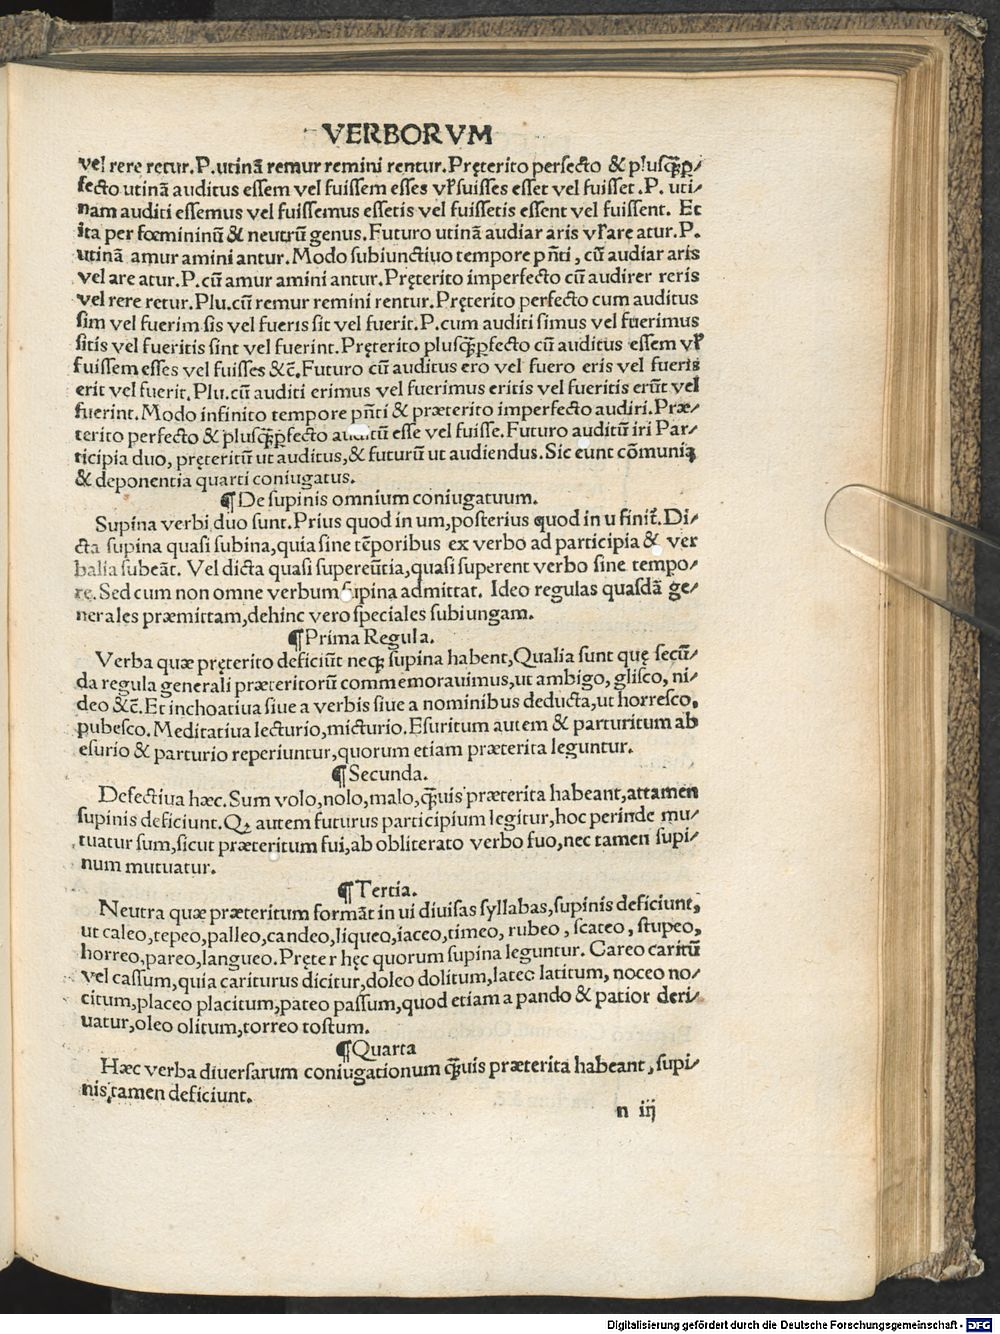 VERBORVM
vel rere retur. P. utinã remur remini rentur. Pręterito perfecto & plusq̃ꝑ⸗
fecto utinã auditus essem vel fuissem esses vł fuisses esset vel fuisset. P. uti⸗
nam auditi essemus vel fuissemus essetis vel fuissetis essent vel fuissent. Et
ita per fœmininũ & neutrũ genus. Futuro utinã audiar aris vł are atur. P.
utinã amur amini antur. Modo subiunctiuo tempore pñti, cũ audiar aris
vel are atur. P. cũ amur amini antur. Pręterito imperfecto cũ audirer reris
vel rere retur. Plu. cũ remur remini rentur. Pręterito perfecto cum auditus
sim vel fuerim sis vel fueris sit vel fuerit. P. cum auditi simus vel fuerimus
sitis vel fueritis sint vel fuerint. Pręterito plusq̃ꝑfecto cũ auditus essem vł
fuissem esses vel fuisses &c̃. Futuro cũ auditus ero vel fuero eris vel fueris
erit vel fuerit. Plu. cũ auditi erimus vel fuerimus eritis vel fueritis erũt vel
fuerint. Modo infinito tempore pñti & præterito imperfecto audiri. Præ⸗
terito perfecto & plusq̃ꝑfecto auditũ esse vel fuisse. Futuro auditũ iri Par⸗
ticipia duo, pręteritũ ut auditus, & futurũ ut audiendus. Sic eunt cõmunia
& deponentia quarti coniugatus.
¶ De supinis omnium coniugatuum.
Supina verbi duo sunt. Prius quod in um, posterius quod in u finit̃. Di⸗
cta supina quasi subina, quia sine tẽporibus ex verbo ad participia & ver
balia subeãt. Vel dicta quasi supereũtia, quasi superent verbo sine tempo⸗
re. Sed cum non omne verbum supina admittat. Ideo regulas quasdã ge⸗
nerales præmittam, dehinc vero speciales subiungam.
¶ Prima Regula.
Verba quæ pręterito deficiũt neqꝫ supina habent, Qualia sunt quę secũ⸗
da regula generali præteritorũ commemorauimus, ut ambigo, glisco, ni⸗
deo &c̃. Et inchoatiua siue a verbis siue a nominibus deducta, ut horresco,
pubesco. Meditatiua lecturio, micturio. Esuritum autem & parturitum ab
esurio & parturio reperiuntur, quorum etiam præterita leguntur.
¶ Secunda.
Defectiua hæc. Sum volo, nolo, malo, q̃uis præterita habeant, attamen
supinis deficiunt. Qꝫ autem futurus participium legitur, hoc perinde mu⸗
tuatur sum, sicut præteritum fui, ab obliterato verbo fuo, nec tamen supi⸗
num mutuatur.
¶ Tertia.
Neutra quæ præteritum formãt in ui diuisas syllabas, supinis deficiunt,
ut caleo, tepeo, palleo, candeo, liqueo, iaceo, timeo, rubeo, scateo, stupeo,
horreo, pareo, langueo. Pręter hęc quorum supina leguntur. Careo caritũ
vel cassum, quia cariturus dicitur, doleo dolitum, lateo latitum, noceo no⸗
citum, placeo placitum, pateo passum, quod etiam a pando & patior deri⸗
uatur, oleo olitum, torreo tostum.
¶ Quarta
Hæc verba diuersarum coniugationum q̃uis præterita habeant, supi⸗
nis tamen deficiunt.
n iij
Digitalisierung gefördert durch die Deutsche Forschungsgemeinschaft - DFG